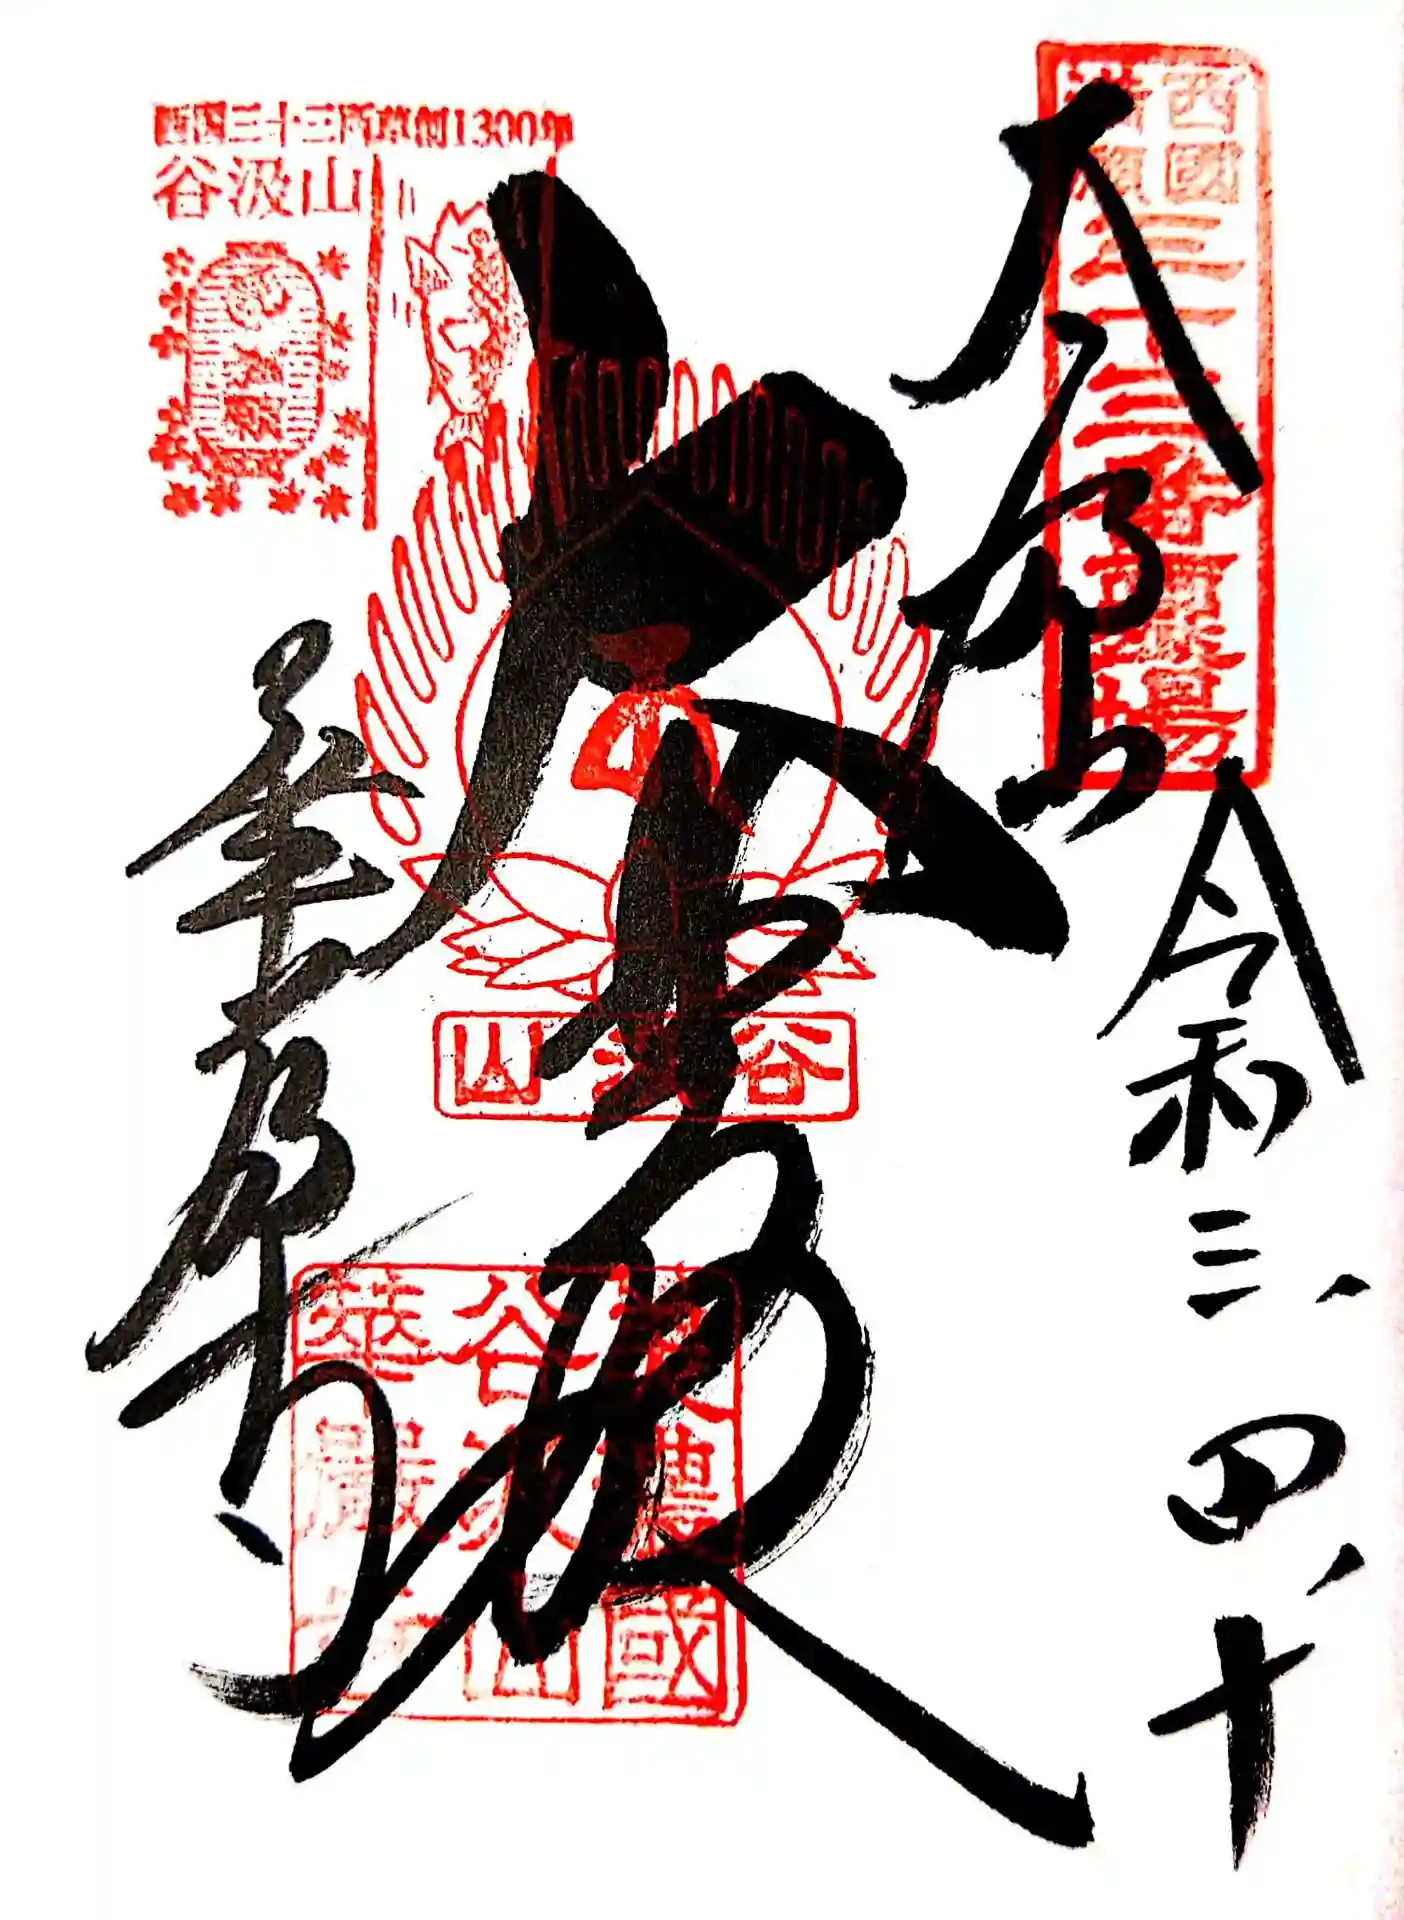 西國
満願
三十三番霊場
令和三、四、十
西国三十三所草創1300年
谷汲山
大悲殿
谷汲山
美濃國
谷汲山
華嚴寺
華厳寺